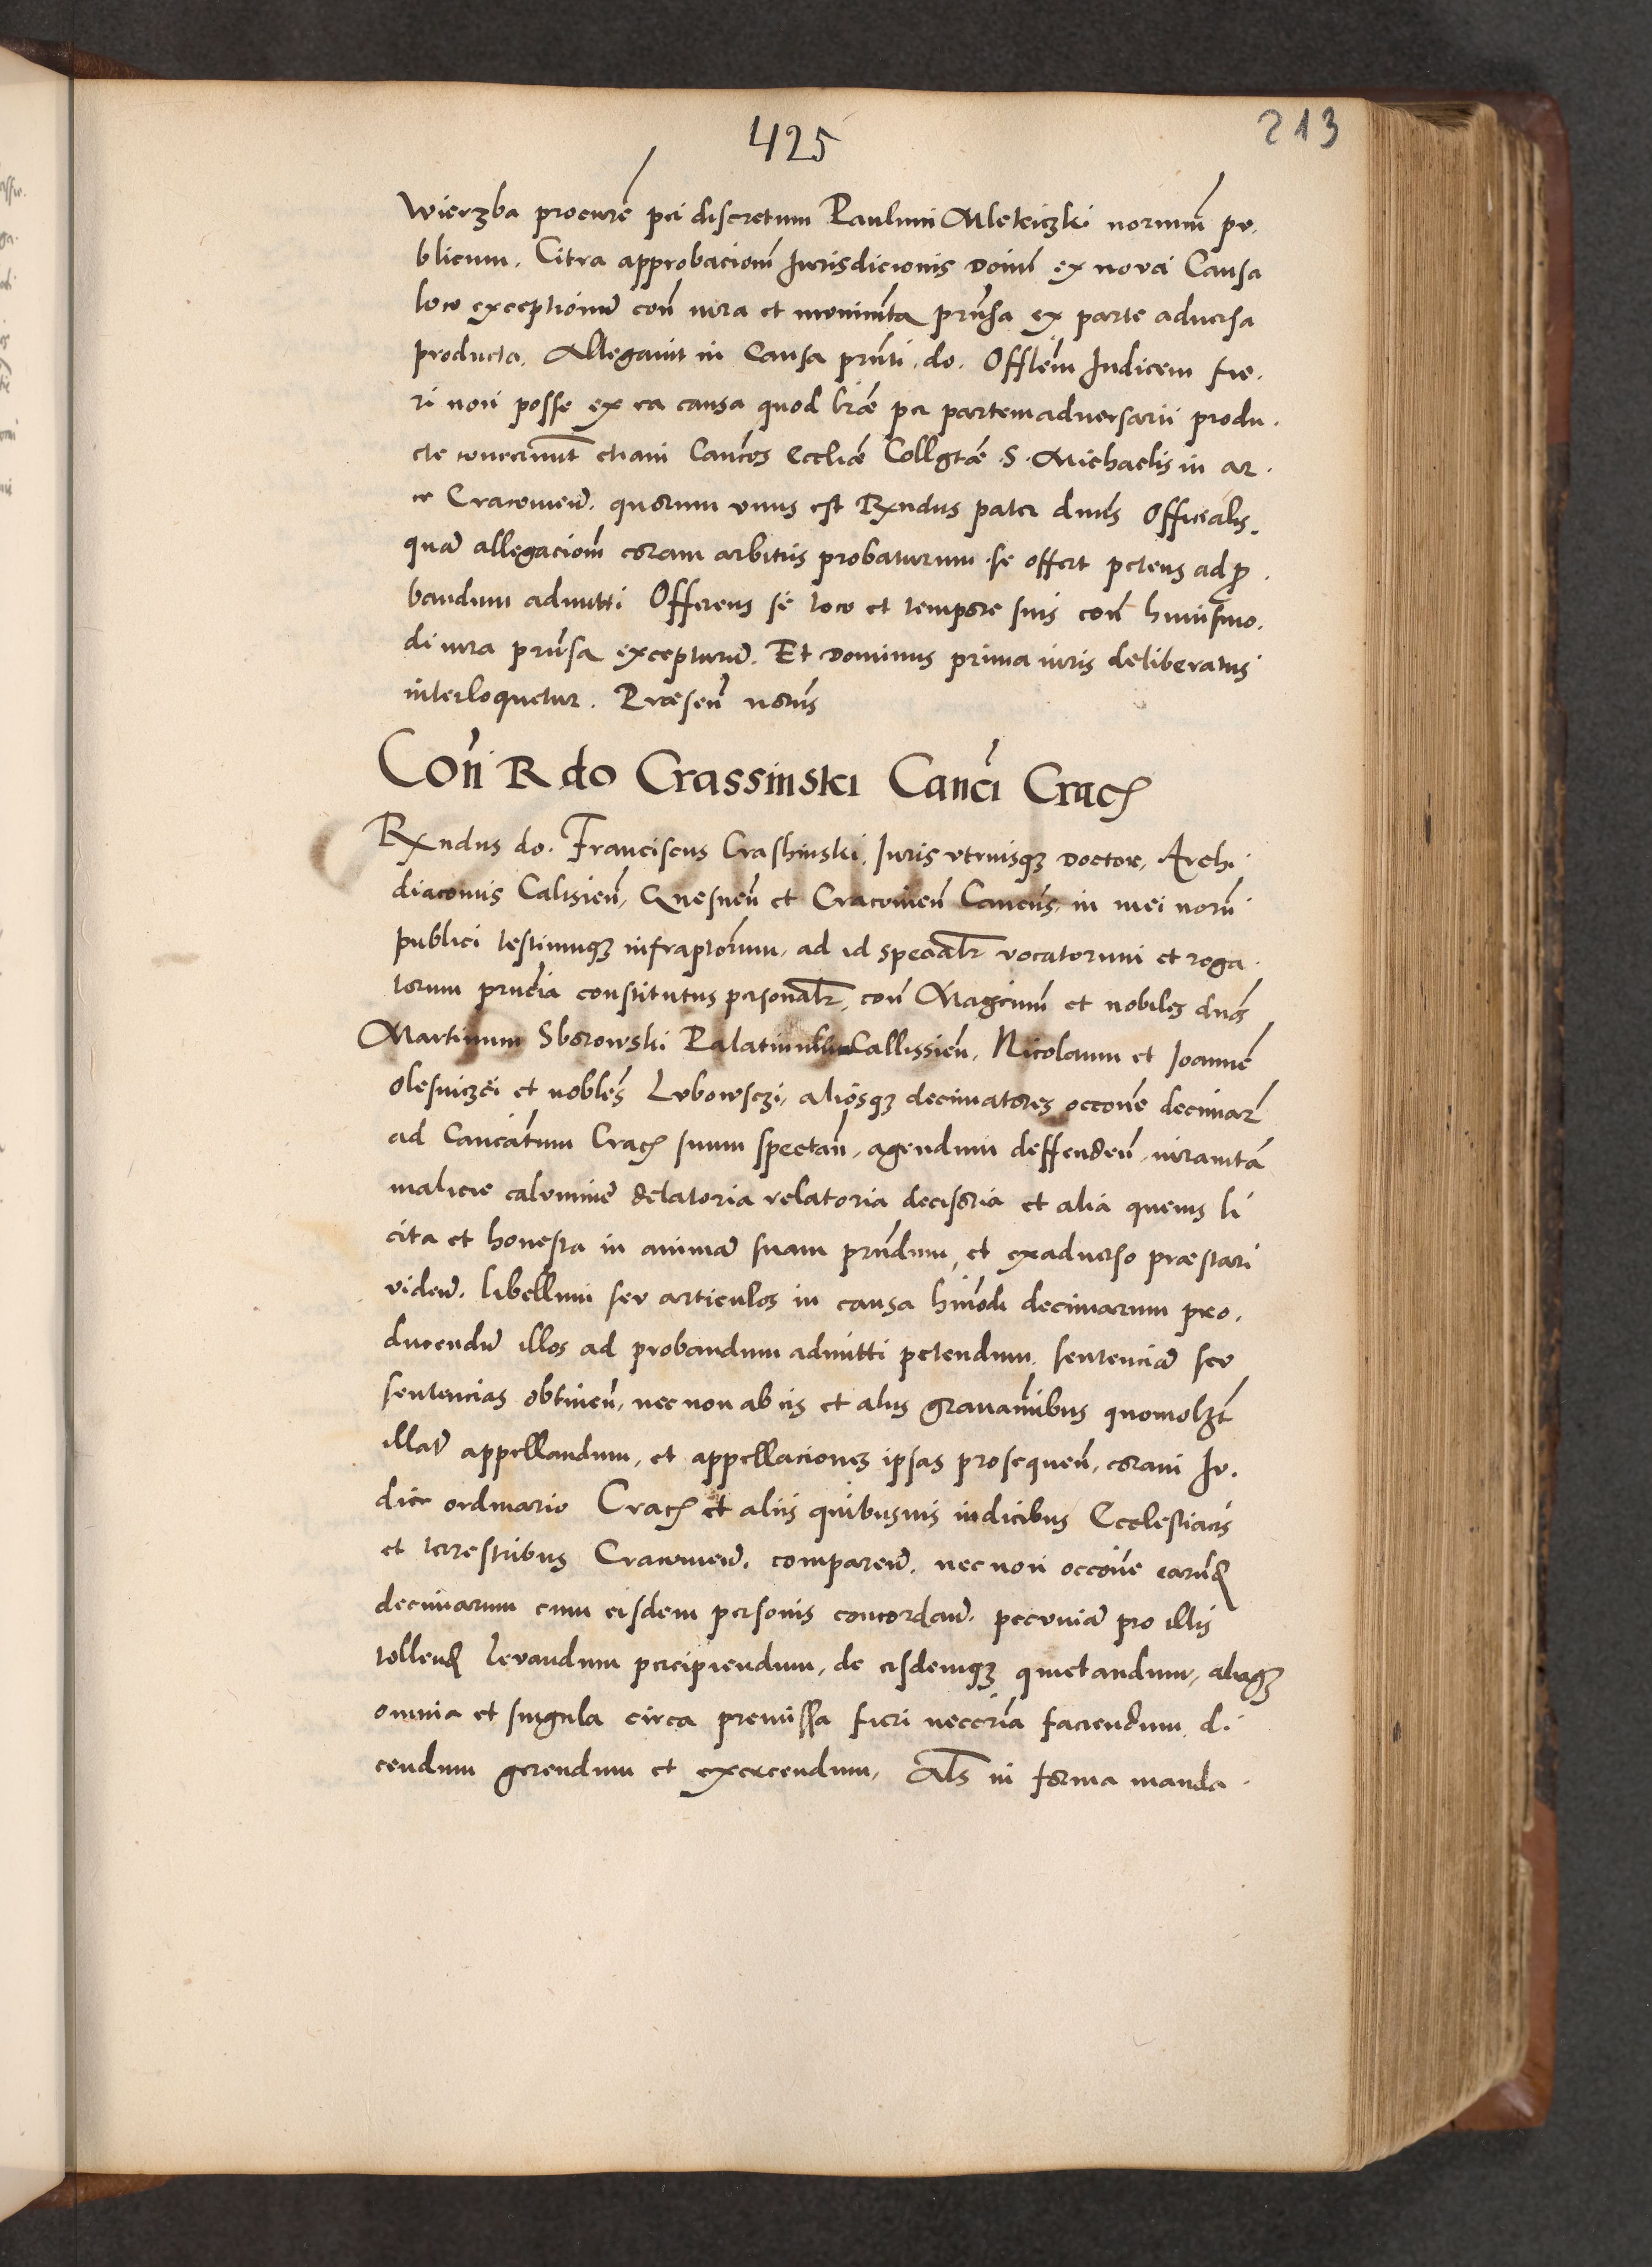 425
213
Wierzba procurē per discretum Paulum Mleteiczki notarium pu.
blicum. Citra approbacionē Jurisdicionis domī ex nova Causa
loco exceptionū con̄ iura et monimēta prn̄sa ex parte adversa
producta. Allegavit in Causa prn̄ti do. Offlēm Judicem fie.
ri non posse ex ea causa quod lr̄æ per partem adversarii produ.
cte concernūt etiam Cancos Eccliæ Collgtæ S. Michaelis in ar.
ce Cracovien̄. quorum unus est Rxndus pater dnūs Officialis.
quā allegacionē coram arbitris probaturum se offert petens ad pro.
bandum admitti Offerens se loco et tempore suis con̄ huiusmo.
di iura prn̄sa excepturū. Et Dominus prima iuris deliberatus
interloquetur. Præsen̄ notūs
Con̄ Rdo Crassinski Canci Crac
Rxndus do. Franciscus Crashinski. Juris utriusq₃ Doctor, Archi
diaconus Calisien̄, Gnesnen̄ et Cracovien̄ Cancus, in mei norīi
publici testiumq₃ infraptorum, ad id specialr̄ vocatorum et roga.
torum prn̄cia constitutus personalr̄, con̄ Magcum et nobiles dnōs
Martinum Sborowski Palatinum Callissien̄, Nicolaum et Joannē
Olesniczci et nobles Lubowsczi, aliosq₃ decimatores occone decimar̄
ad Cancatum Crac suum spectan̄, agendum deffenden̄, iuramtā
malicie calumniæ delatoria relatoria decisoria et alia quevis li
cita et honesta in animā suam prn̄dum, et exadverso præstari
viden̄. libellum seu articulos in causa hmōdi decimarum pro.
ducendū illos ad probandum admitti petendum. sentenciā seu
sentencias obtinen̄, nec non ab eis et aliis gravaminibus quomolzt
illatī appellandum, et appellaciones ipsas prosequen̄, coram Ju.
dice ordinario Crac et aliis quibusvis iudicibus Ecclesiacis
et terrestribus Cracovien̄. comparen̄. nec non occone earund
decimarum cum eisdem personis concordan̄. pecuniā pro illis
tollend levandum percipiendum, de eisdemq₃ quietandum, aliaq₃
omnia et singula circa premissa fieri neccria faciendum di
cendum gerendum et exercendum, Als in forma manda.